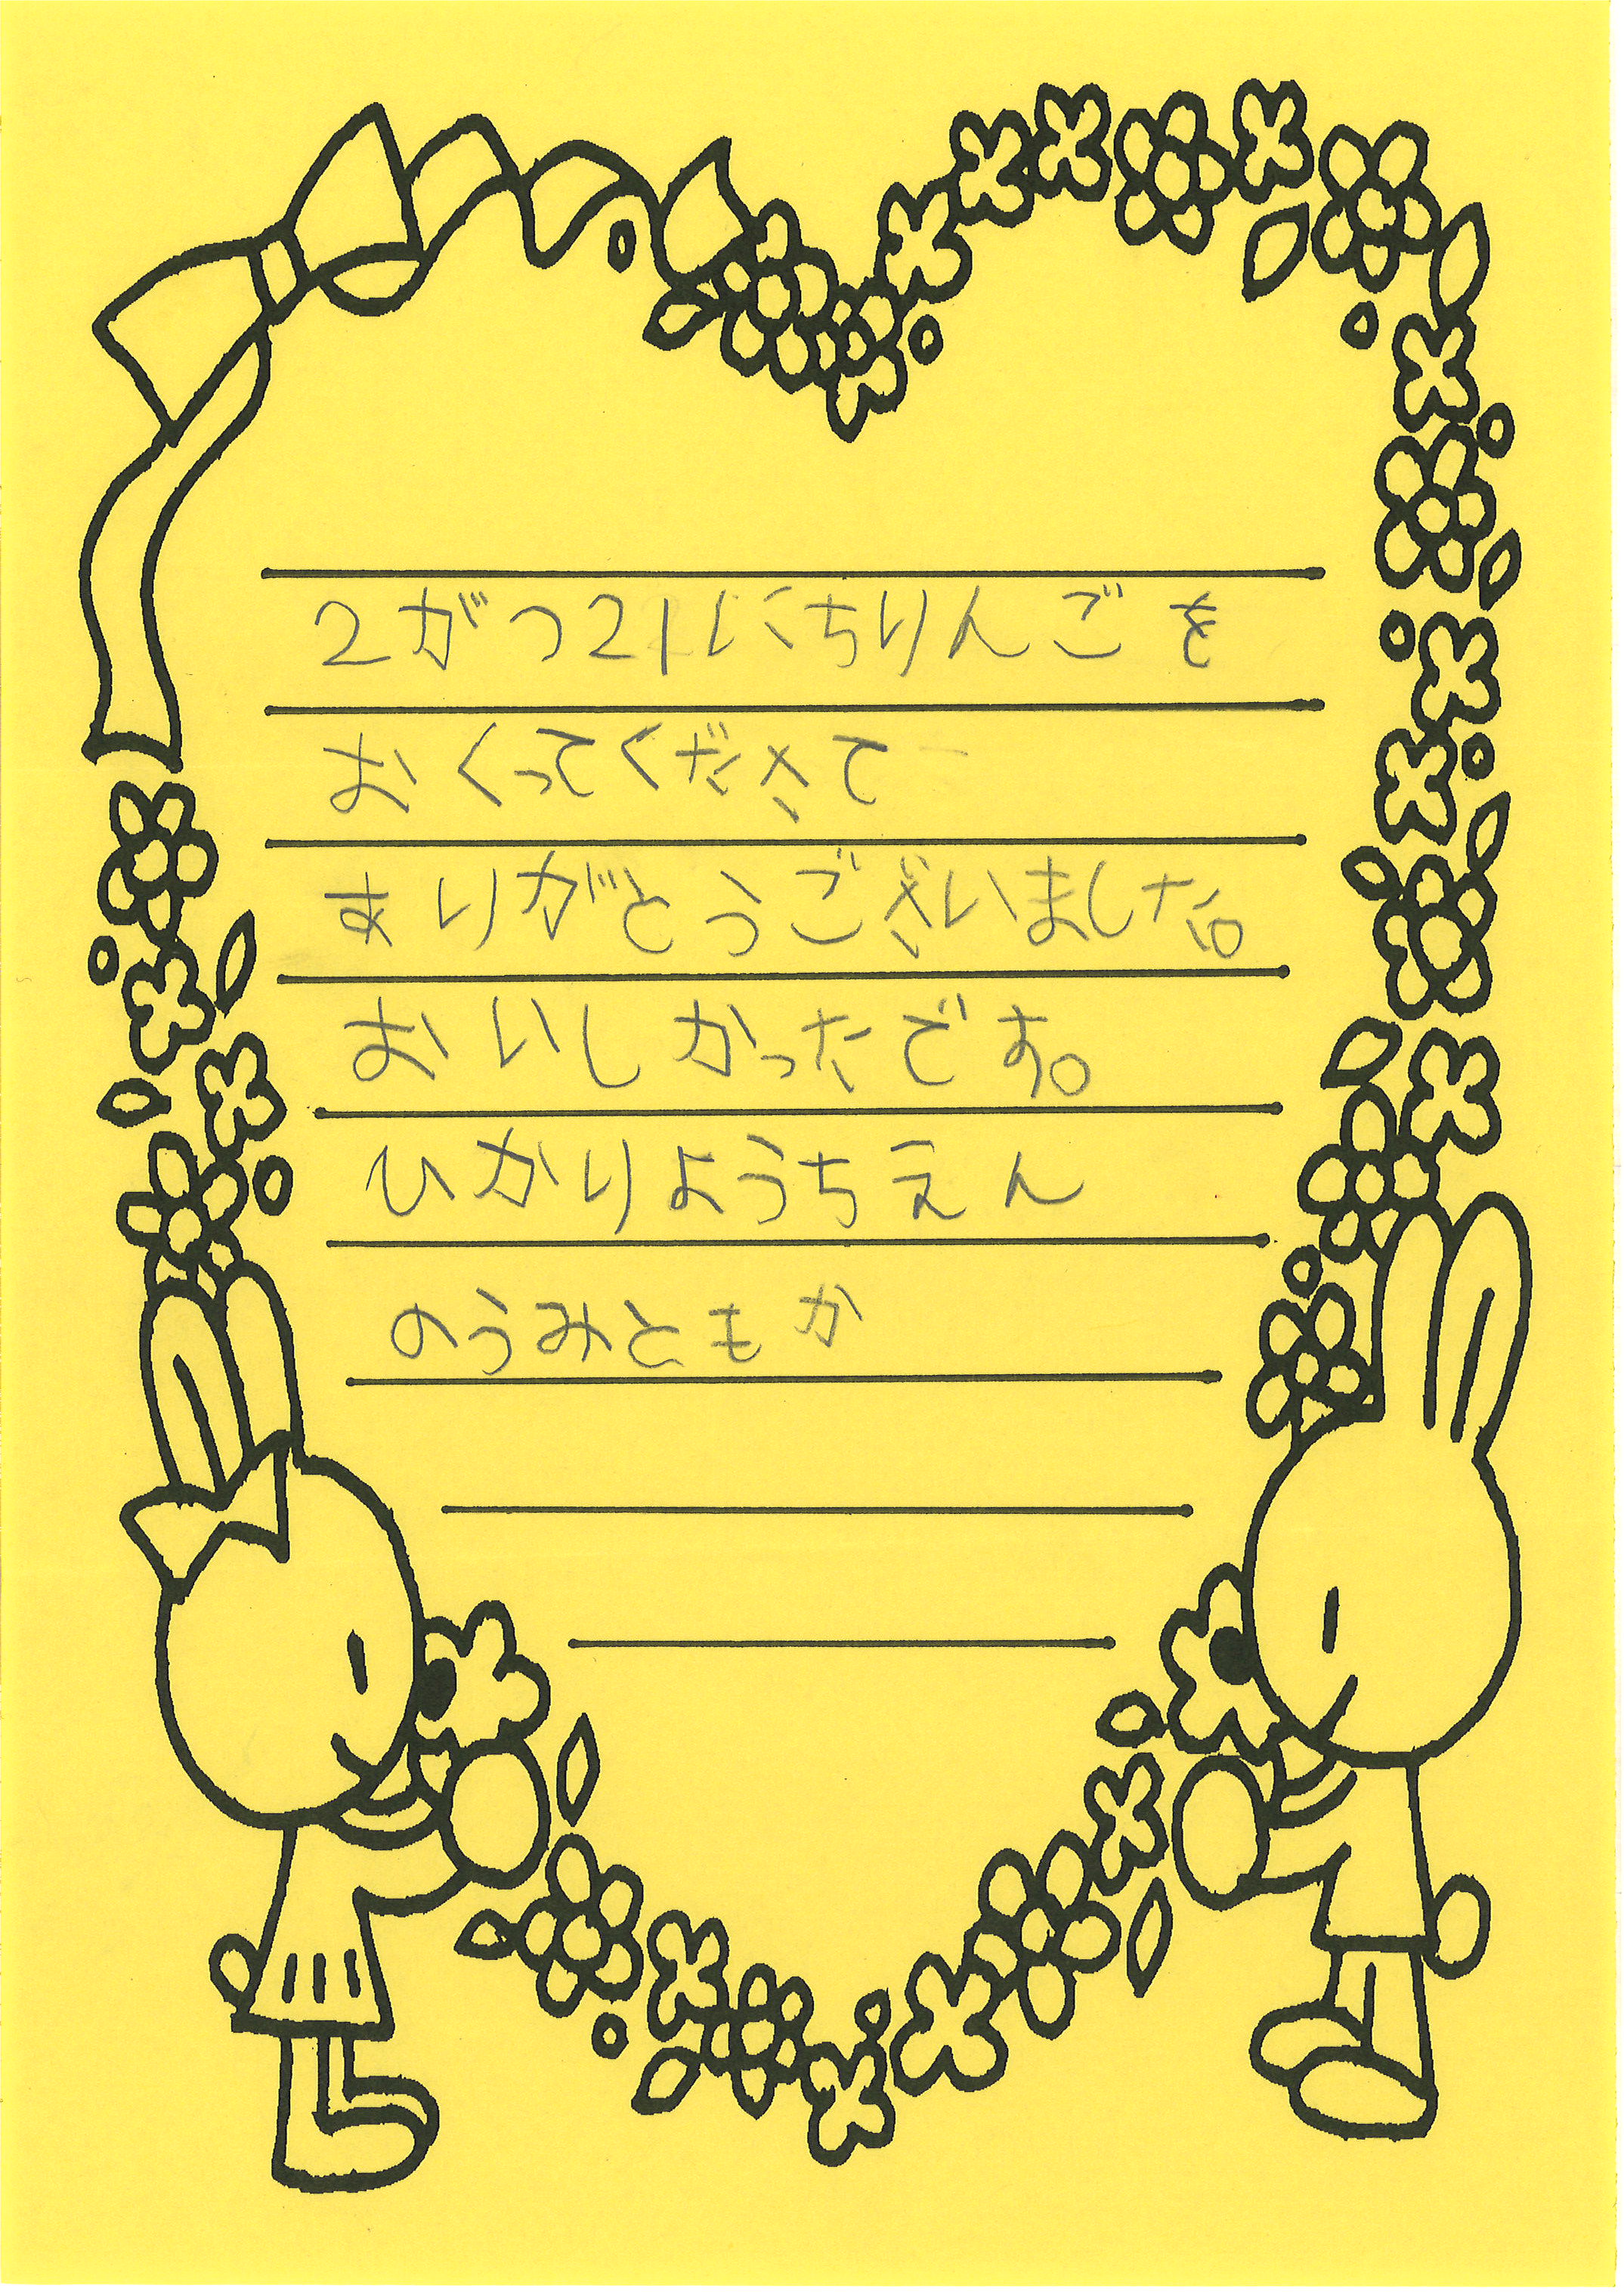 2がつ21にちりんごを
おくってくださて
ありがとうございました。
おいしかったです。
ひかりようちえん
のうみともか